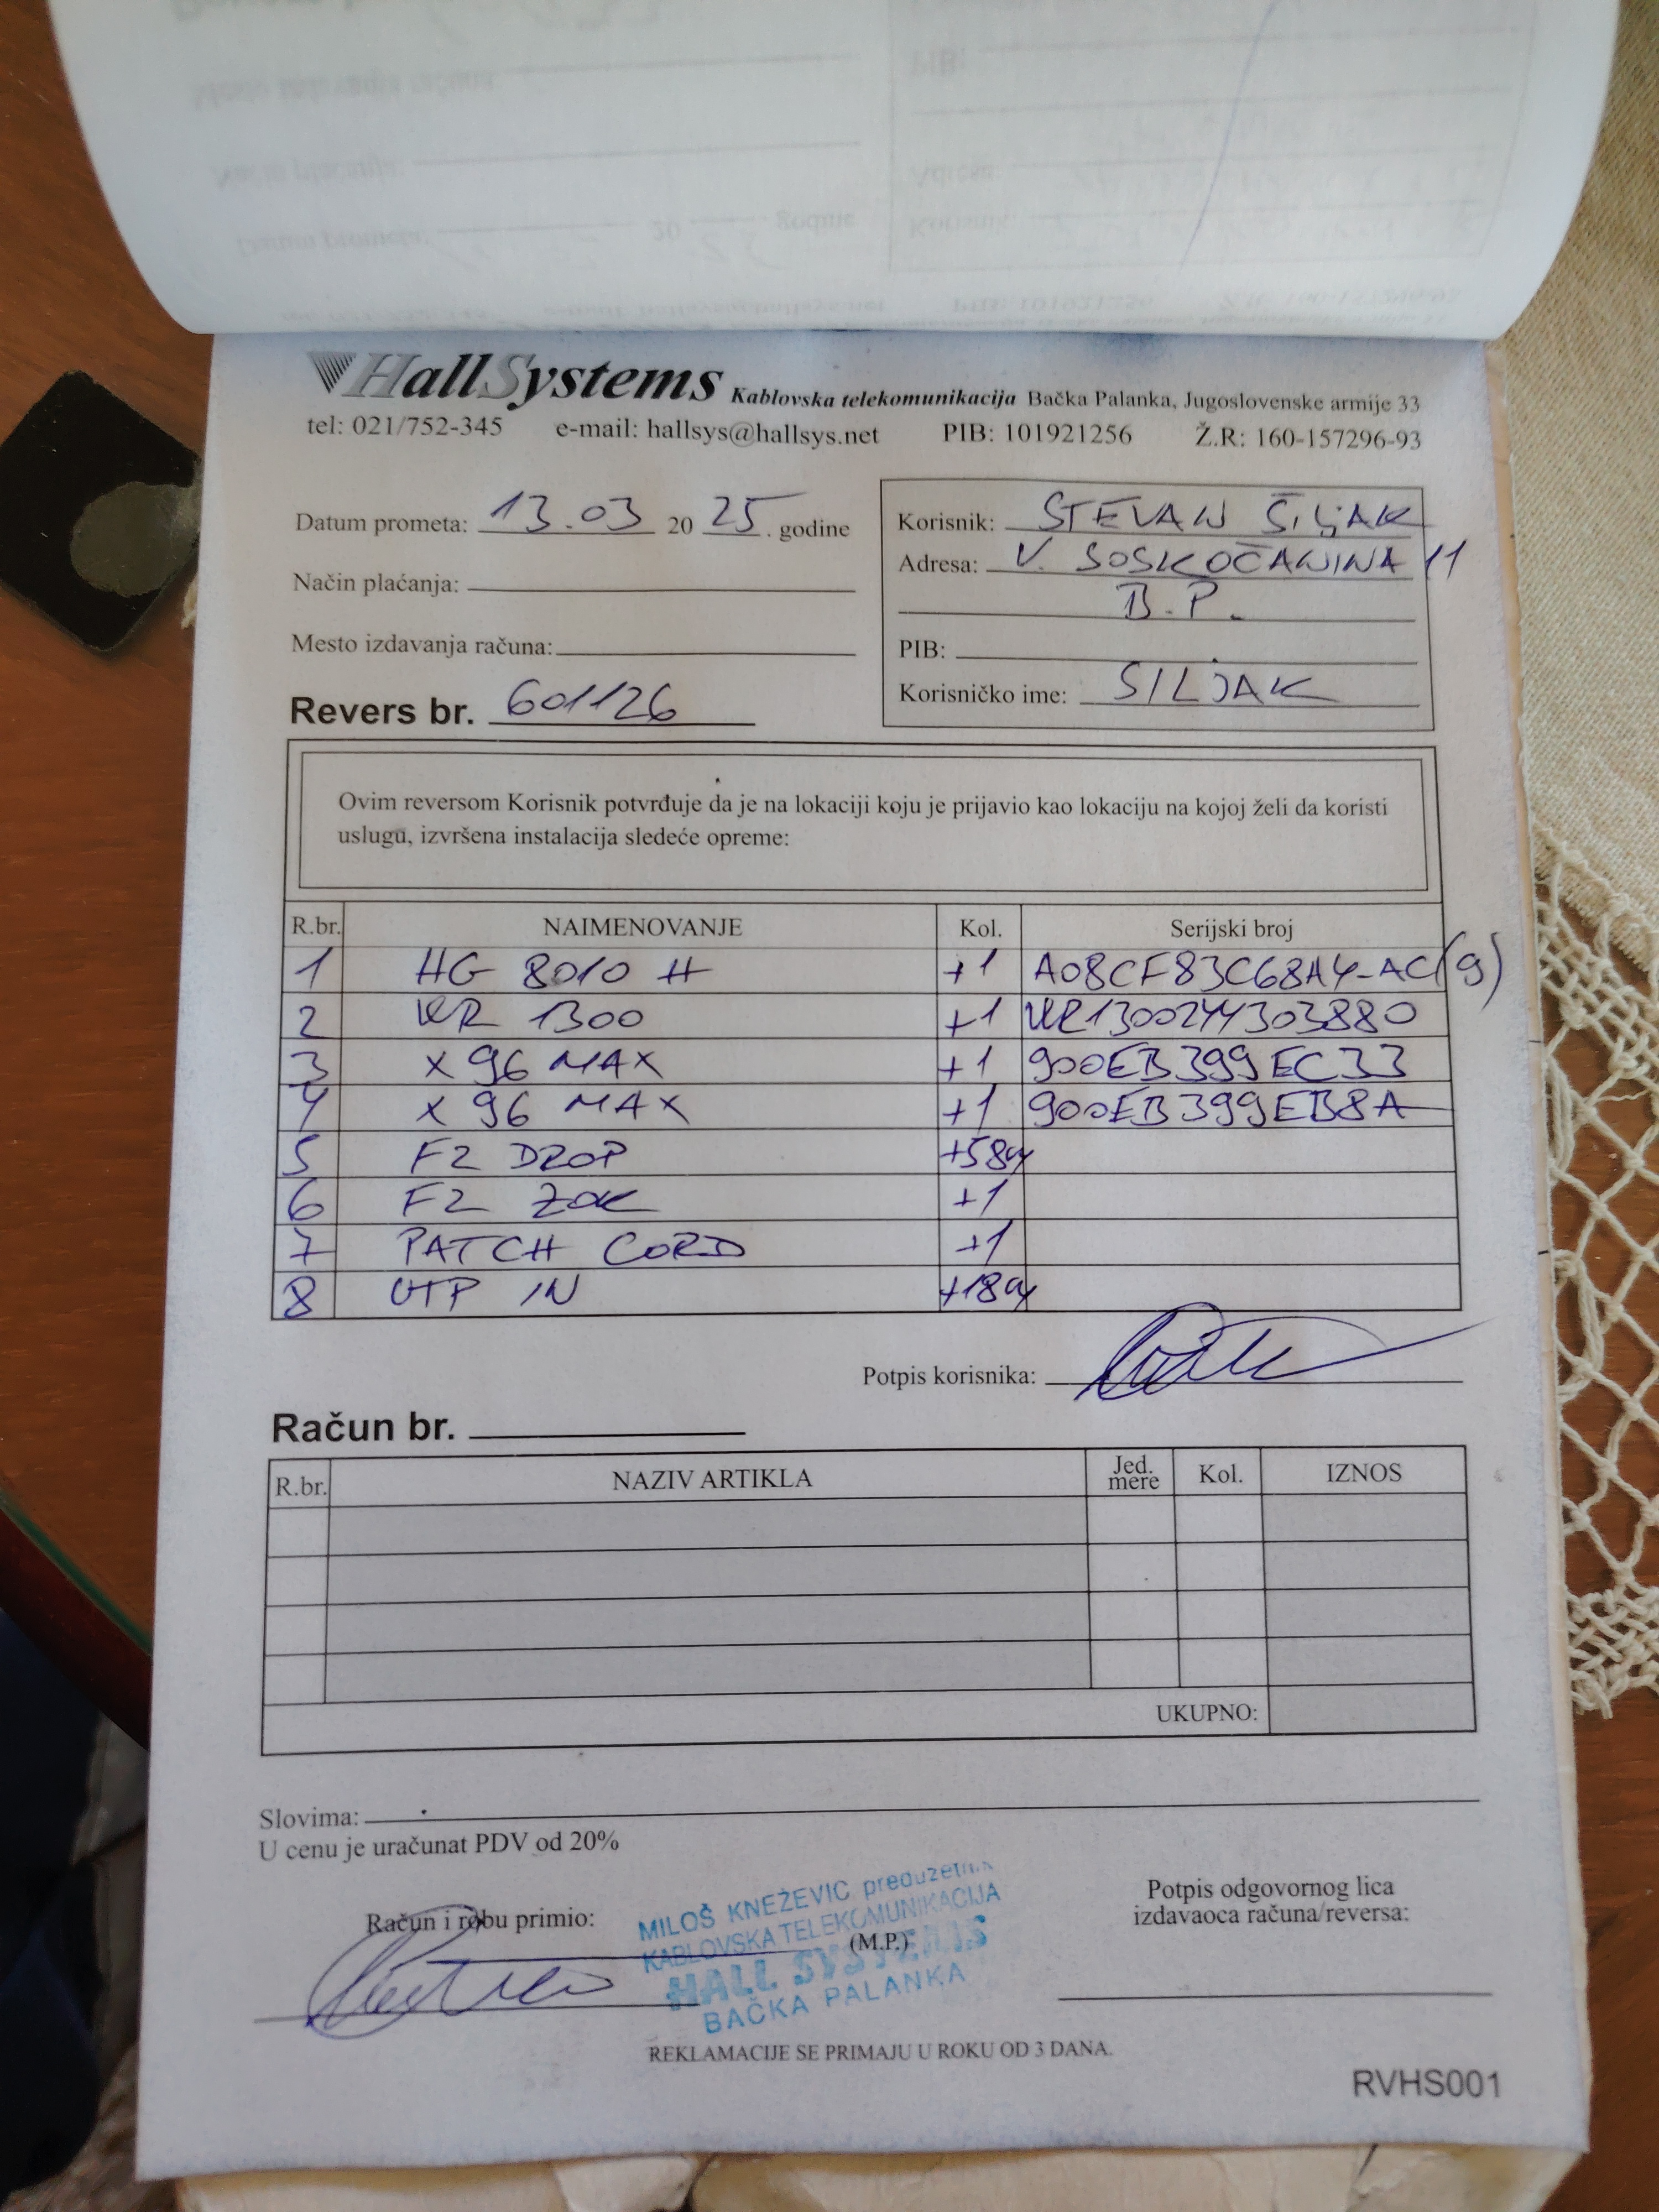 HallSystems Kablovska telekomunikacija Bačka Palanka, Jugoslovenske armije 33
tel: 021/752-345 e-mail: hallsys@hallsys.net PIB: 101921256 Ž.R: 160-157296-93
Datum prometa: 13.03 20 25. godine
Način plaćanja:
Mesto izdavanja računa:
Revers br. 601126
Korisnik: STEVAN ŠILJAK
Adresa: V. SOSKOČANINA 11
B.P.
PIB:
Korisničko ime: SILJAK
Ovim reversom Korisnik potvrđuje da je na lokaciji koju je prijavio kao lokaciju na kojoj želi da koristi
uslugu, izvršena instalacija sledeće opreme:
R.br. NAIMENOVANJE Kol. Serijski broj
1 HG 8010 H +1 A08CF83C68A4-AC(g)
2 KR 1300 +1 KR1300244303880
3 X 96 MAX +1 900EB399EC33
4 X 96 MAX +1 900EB399EB8A
5 F2 DROP +58m
6 F2 ZOK +1
7 PATCH CORD +1
8 UTP IN +18m
Potpis korisnika:
Račun br.
R.br. NAZIV ARTIKLA Jed. mere Kol. IZNOS
UKUPNO:
Slovima:
U cenu je uračunat PDV od 20%
Račun i robu primio:
MILOŠ KNEŽEVIC preduzetnik
KABLOVSKA TELEKOMUNIKACIJA
(M.P.)
HALL SYSTEMS
BAČKA PALANKA
Potpis odgovornog lica
izdavaoca računa/reversa:
REKLAMACIJE SE PRIMAJU U ROKU OD 3 DANA.
RVHS001